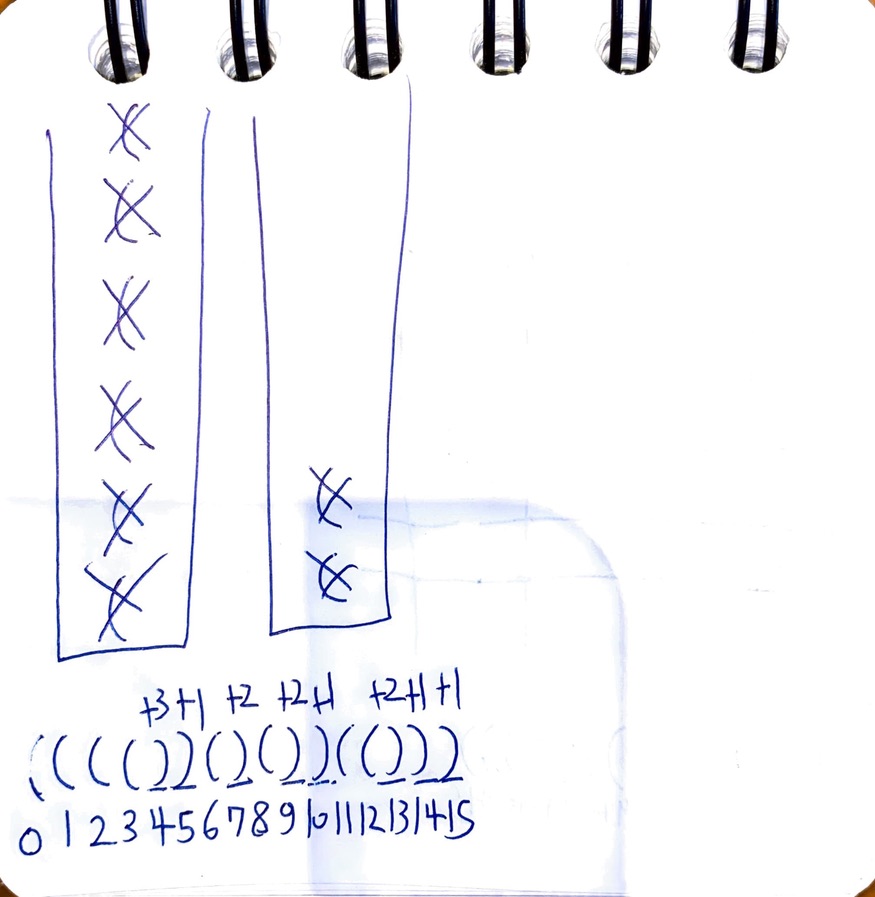 +3 +1 +2 +2 +1 +2 +1 +1
(((())()())(()))
0 1 2 3 4 5 6 7 8 9 10 11 12 13 14 15